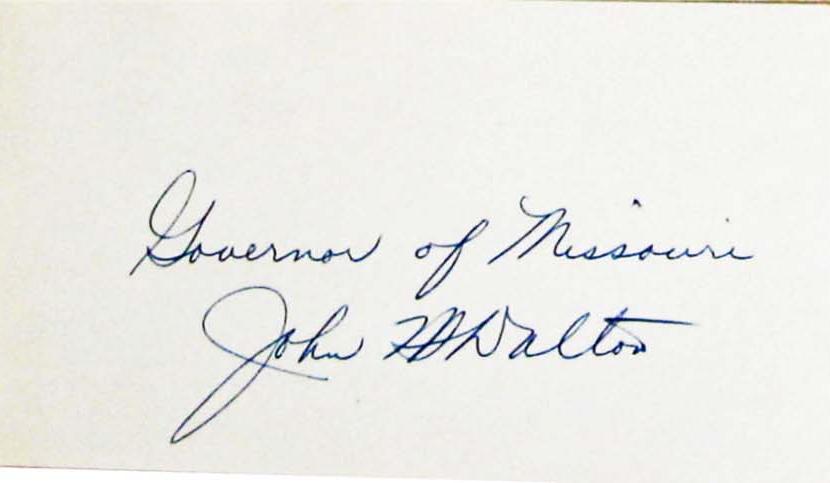 Governor of Missouri
John M Dalton